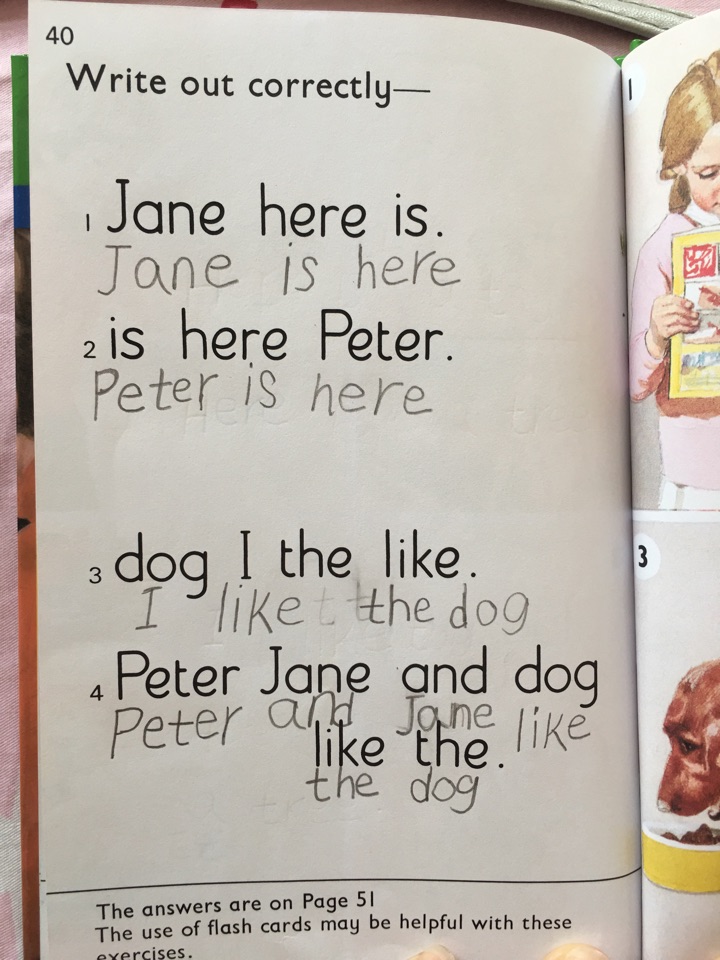 40
Write out correctly—
1 Jane here is.
Jane is here
2 is here Peter.
Peter is here
3 dog I the like.
I like the dog
4 Peter Jane and dog
Peter and Jane like
like the.
the dog
The answers are on Page 51
The use of flash cards may be helpful with these
exercises.
1
3